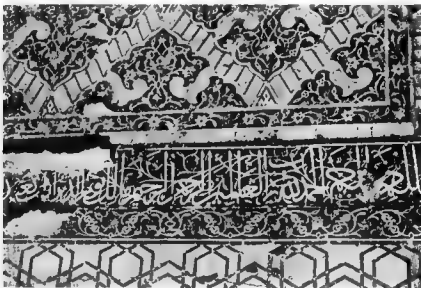 الله الرحمن الرحيم الحمد لله رب العلمين الرحمن الرحيم ملك يوم الدين